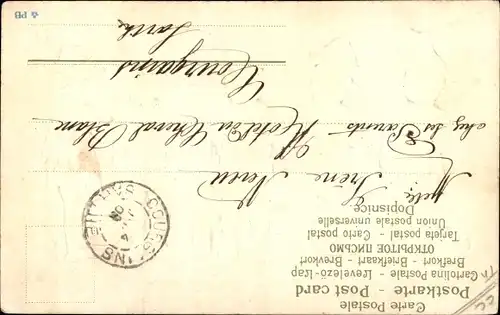 Carte Postale
Postkarte - Post card
Cartolina Postale - Levelező-Lap
Brefkort - Briefkaart - Brevkort
ОТКРЫТОЕ ПИСЬМО
Tarjeta postal - Carto postal
Union postale universelle
Dopisnice
Melle Irène
chez ses Parents Hotel du Cheval Blanc
Courgains
Sarthe
COURGAINS
SARTHE
PB